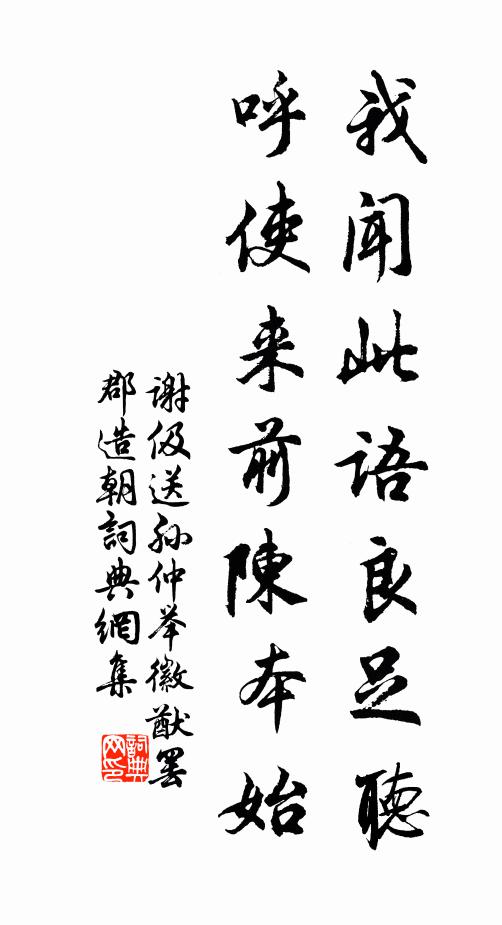 我聞此語良足聽
呼使来前陳本始
谢伋送孙仲举徽猷罢
郡造朝詞典網集
詞典
网印